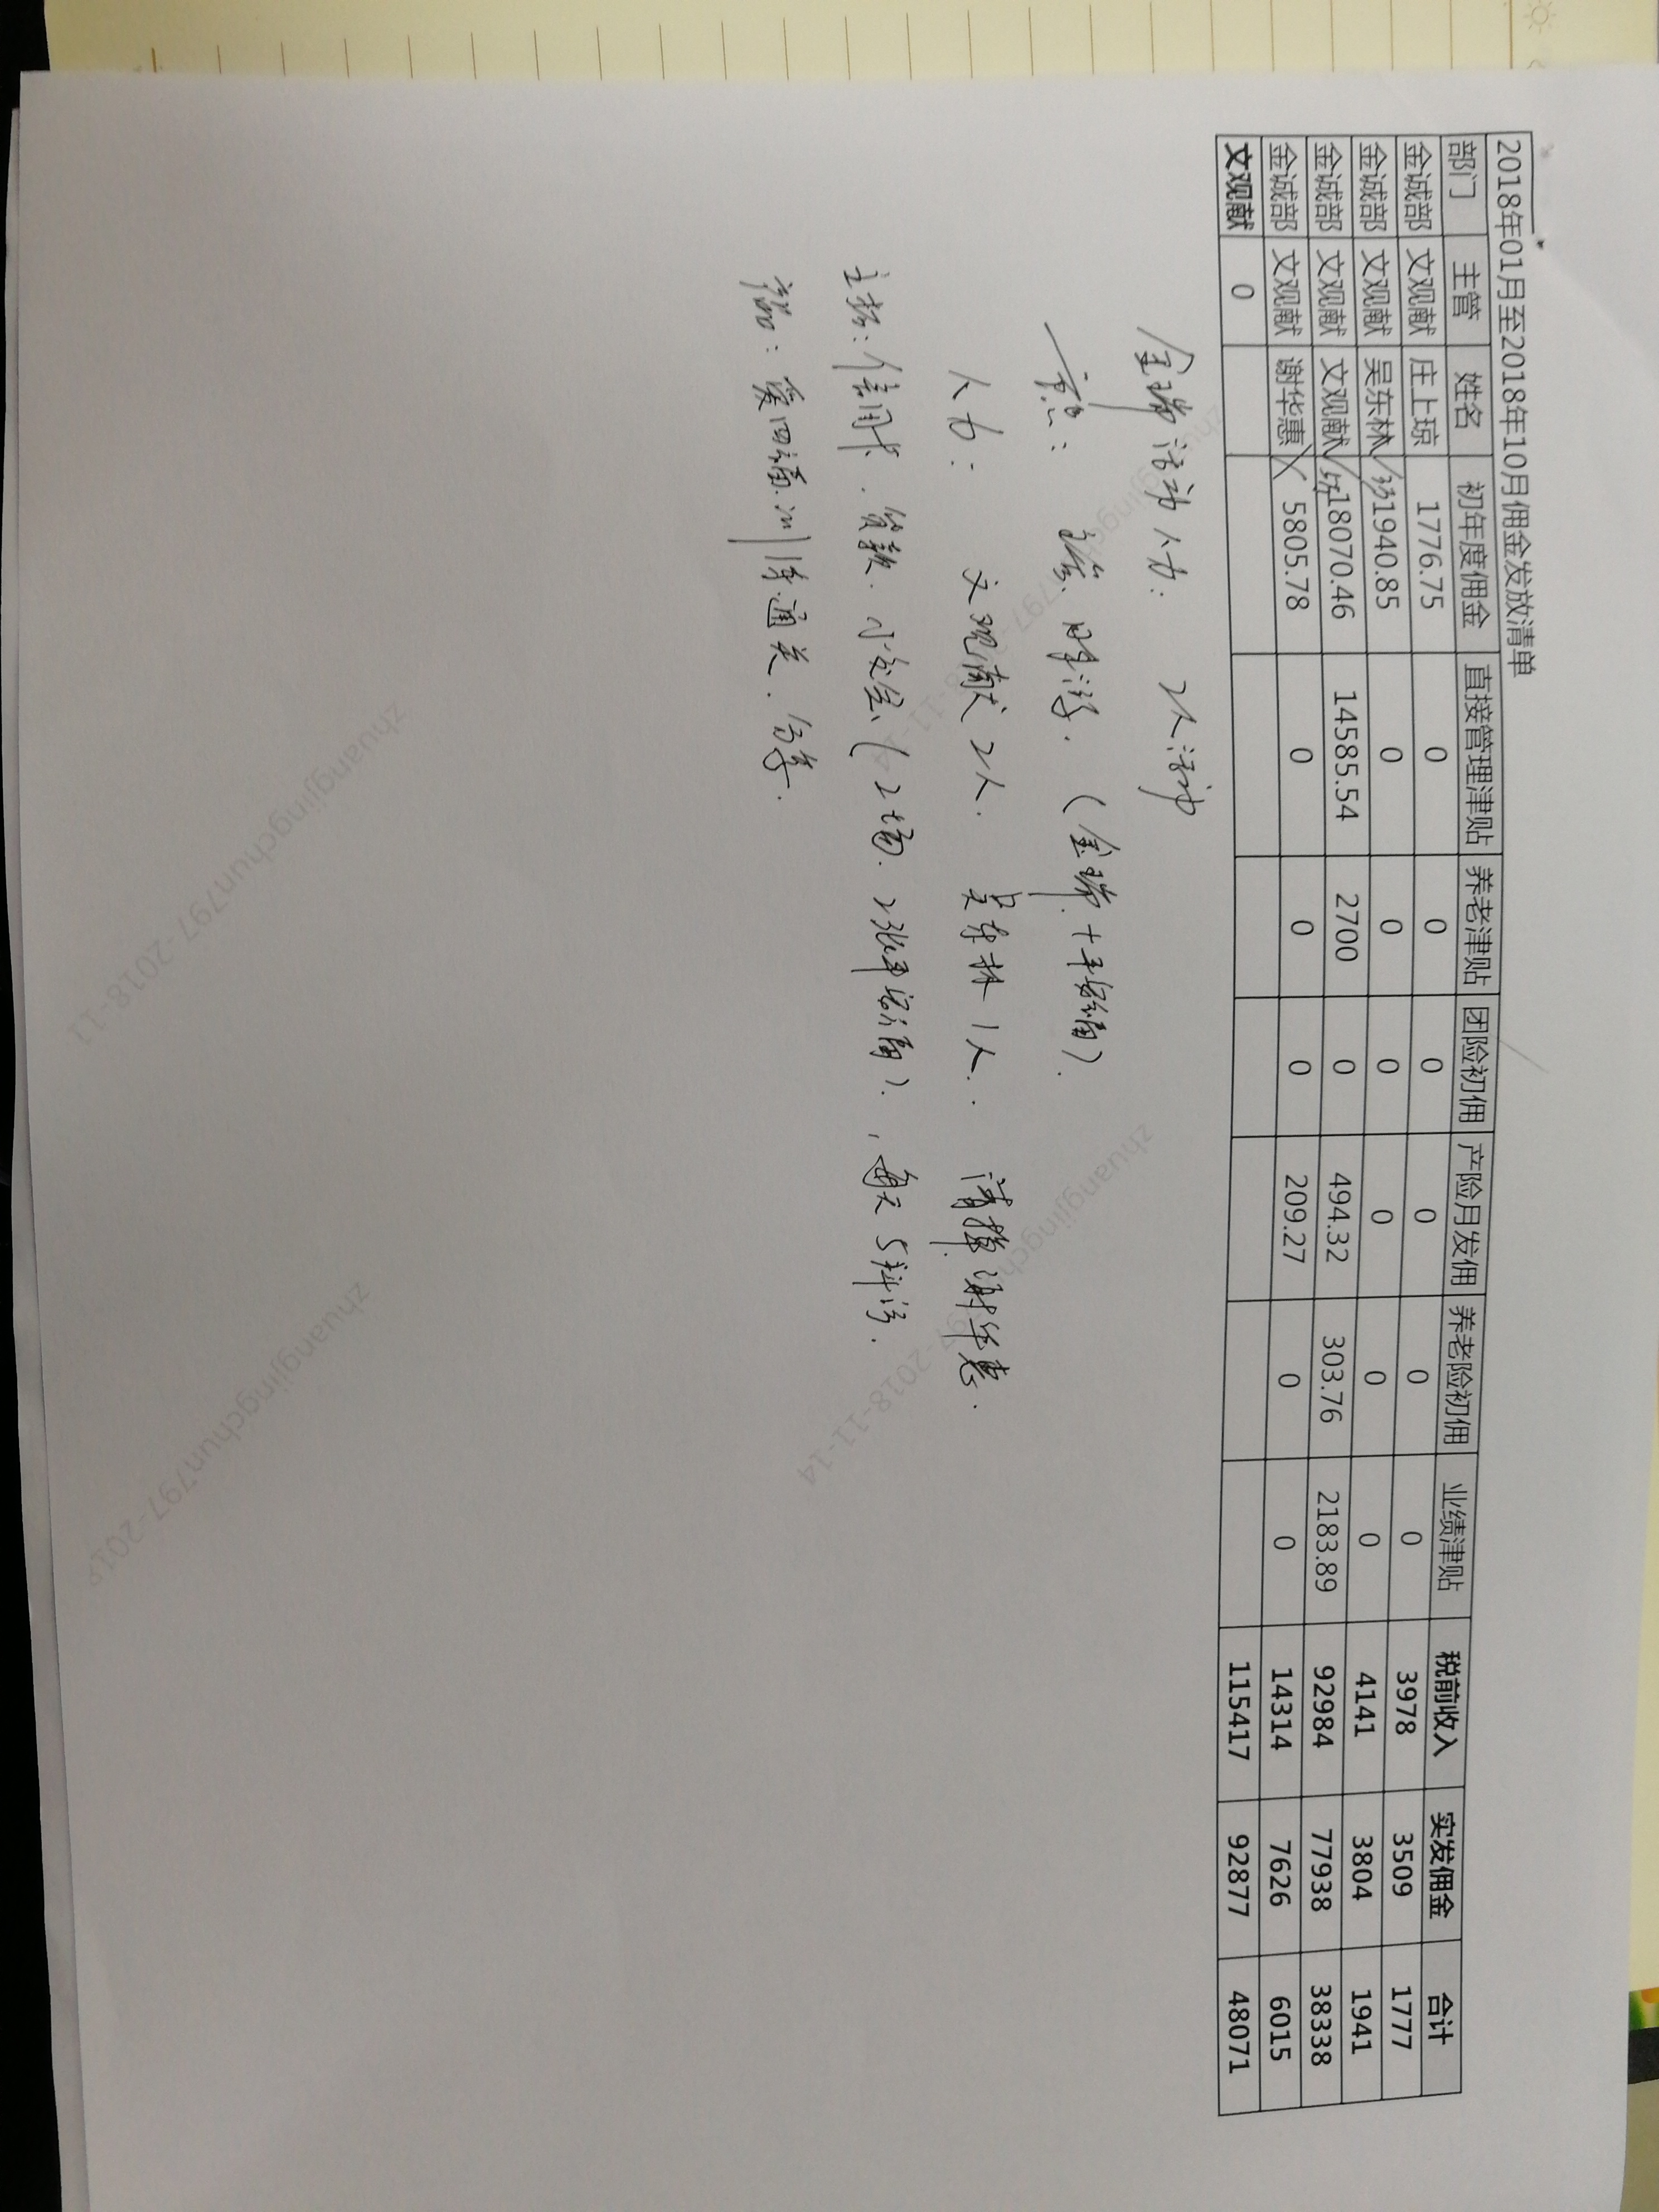 2018年01月至2018年10月佣金发放清单
部门 主管 姓名 初年度佣金 直接管理津贴 养老津贴 团险初佣 产险月发佣 养老险初佣 业绩津贴 税前收入 实发佣金 合计
金诚部 文观献 庄上琼 1776.75 0 0 0 0 0 0 3978 3509 1777
金诚部 文观献 吴东林 1940.85 0 0 0 0 0 0 4141 3804 1941
金诚部 文观献 文观献 18070.46 14585.54 2700 0 494.32 303.76 2183.89 92984 77938 38338
金诚部 文观献 谢华惠 5805.78 0 0 0 209.27 0 0 14314 7626 6015
文观献 0 115417 92877 48071
金瑞活动人力: 2人活动
(金瑞+平安福).
人力: 文观献2人. 吴东林1人. 谢华惠.
主拓:信用卡、贷款. (2场. 2张平安福). , 每天5拜访.
通关.
zhuangjingchun797-2018-11-14
zhuangjingchun797-2018-11
zhuangjingchun797-2018